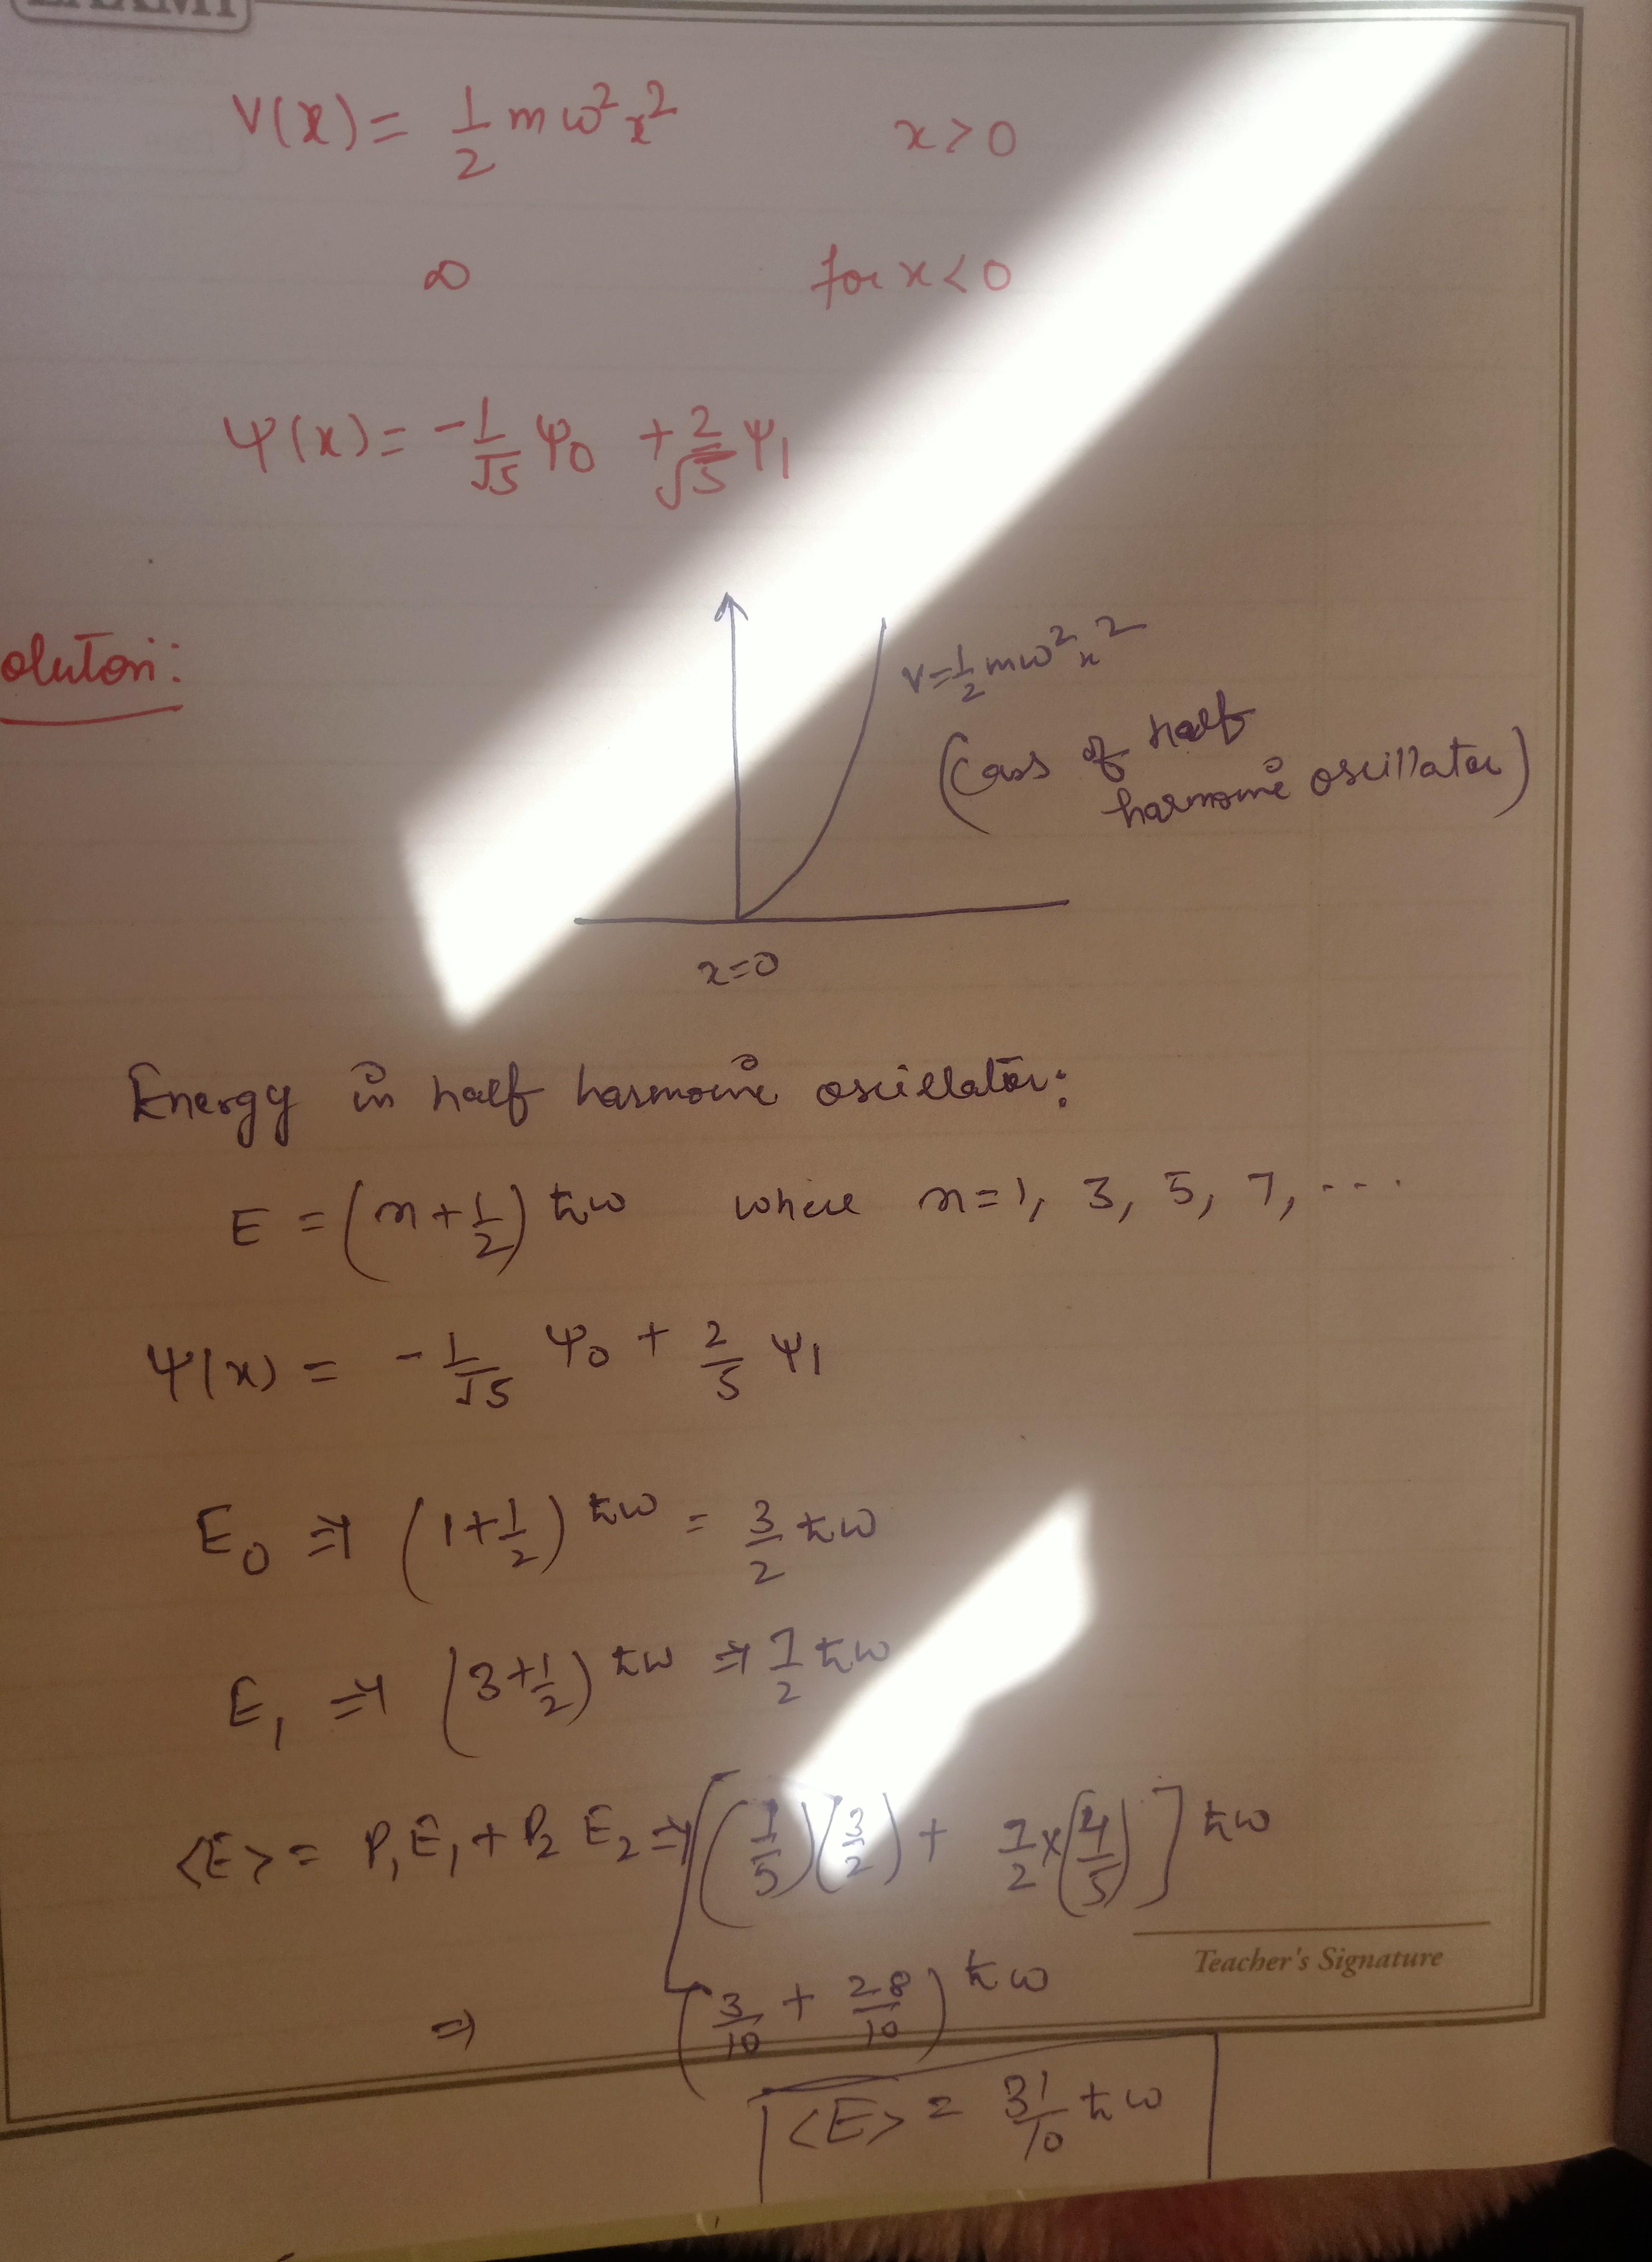 V(x) = 1/2 mω²x² x>0
∞ for x<0
Ψ(x) = -1/√5 Ψ0 + 2/√5 Ψ1
olution:
V=1/2 mω²x²
(Case of half
harmonic oscillator)
x=0
Energy in half harmonic oscillator:
E = (n+1/2) ħω where n=1, 3, 5, 7, ....
Ψ(x) = -1/√5 Ψ0 + 2/5 Ψ1
E0 ⇒ (1+1/2) ħω = 3/2 ħω
E1 ⇒ (3+1/2) ħω ⇒ 7/2 ħω
<E> = P1E1 + P2 E2 ⇒ [(1/5)(3/2) + 7/2×(4/5)] ħω
Teacher's Signature
⇒ (3/10 + 28/10) ħω
<E> = 31/10 ħω